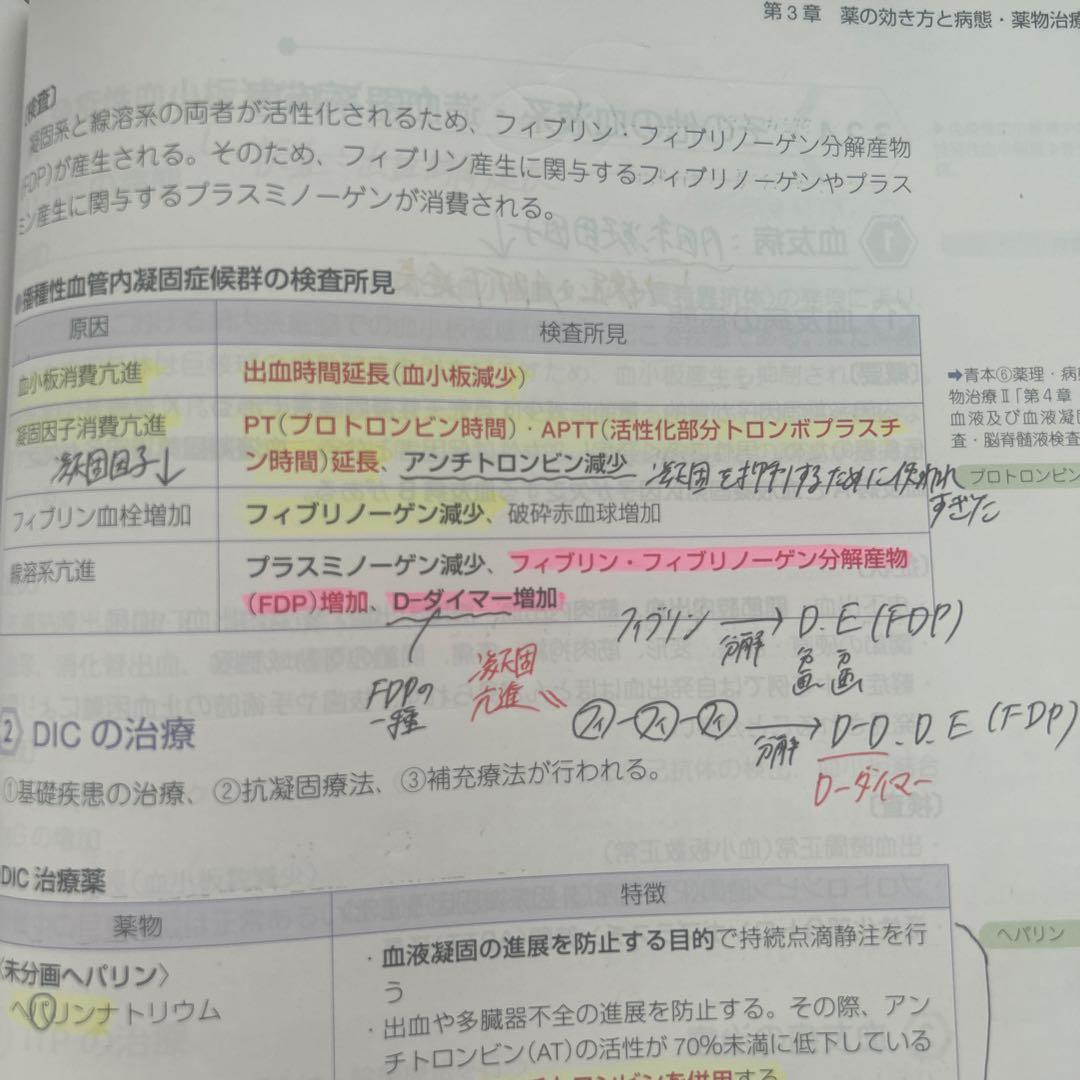 第3章 薬の効き方と病態・薬物治療
〔検査〕
凝固系と線溶系の両者が活性化されるため、フィブリン・フィブリノーゲン分解産物
(FDP)が産生される。そのため、フィブリン産生に関与するフィブリノーゲンやプラス
ミン産生に関与するプラスミノーゲンが消費される。
●播種性血管内凝固症候群の検査所見
原因 検査所見
血小板消費亢進 出血時間延長(血小板減少)
凝固因子消費亢進 PT(プロトロンビン時間)・APTT(活性化部分トロンボプラスチ
ン時間)延長、アンチトロンビン減少
凝固因子↓
凝固を抑制するために使われ
すぎた
フィブリン血栓増加 フィブリノーゲン減少、破砕赤血球増加
線溶系亢進 プラスミノーゲン減少、フィブリン・フィブリノーゲン分解産物
(FDP)増加、D-ダイマー増加
➡青本⑥薬理・病態
物治療Ⅱ「第4章
血液及び血液凝固
査・脳脊髄液検査
プロトロンビン
フィブリン → D.E(FDP)
分解
分画 分画
FDPの
一種
凝固
亢進
フィ-フィ-フィ → D-D.D.E(FDP)
分解
D-ダイマー
2 DICの治療
①基礎疾患の治療、②抗凝固療法、③補充療法が行われる。
DIC治療薬
薬物 特徴
〈未分画ヘパリン〉
ヘパリンナトリウム
・血液凝固の進展を防止する目的で持続点滴静注を行
う
・出血や多臓器不全の進展を防止する。その際、アン
チトロンビン(AT)の活性が70%未満に低下している
チトロンビンを併用する
ヘパリン